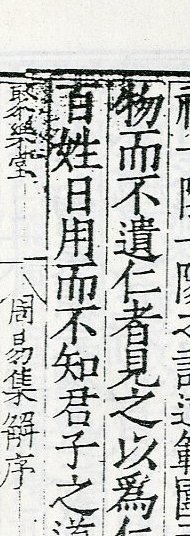 一陰一陽之謂道範圍
物而不遺仁者見之以爲仁
百姓日用而不知君子之道
聚樂堂
周易集解序